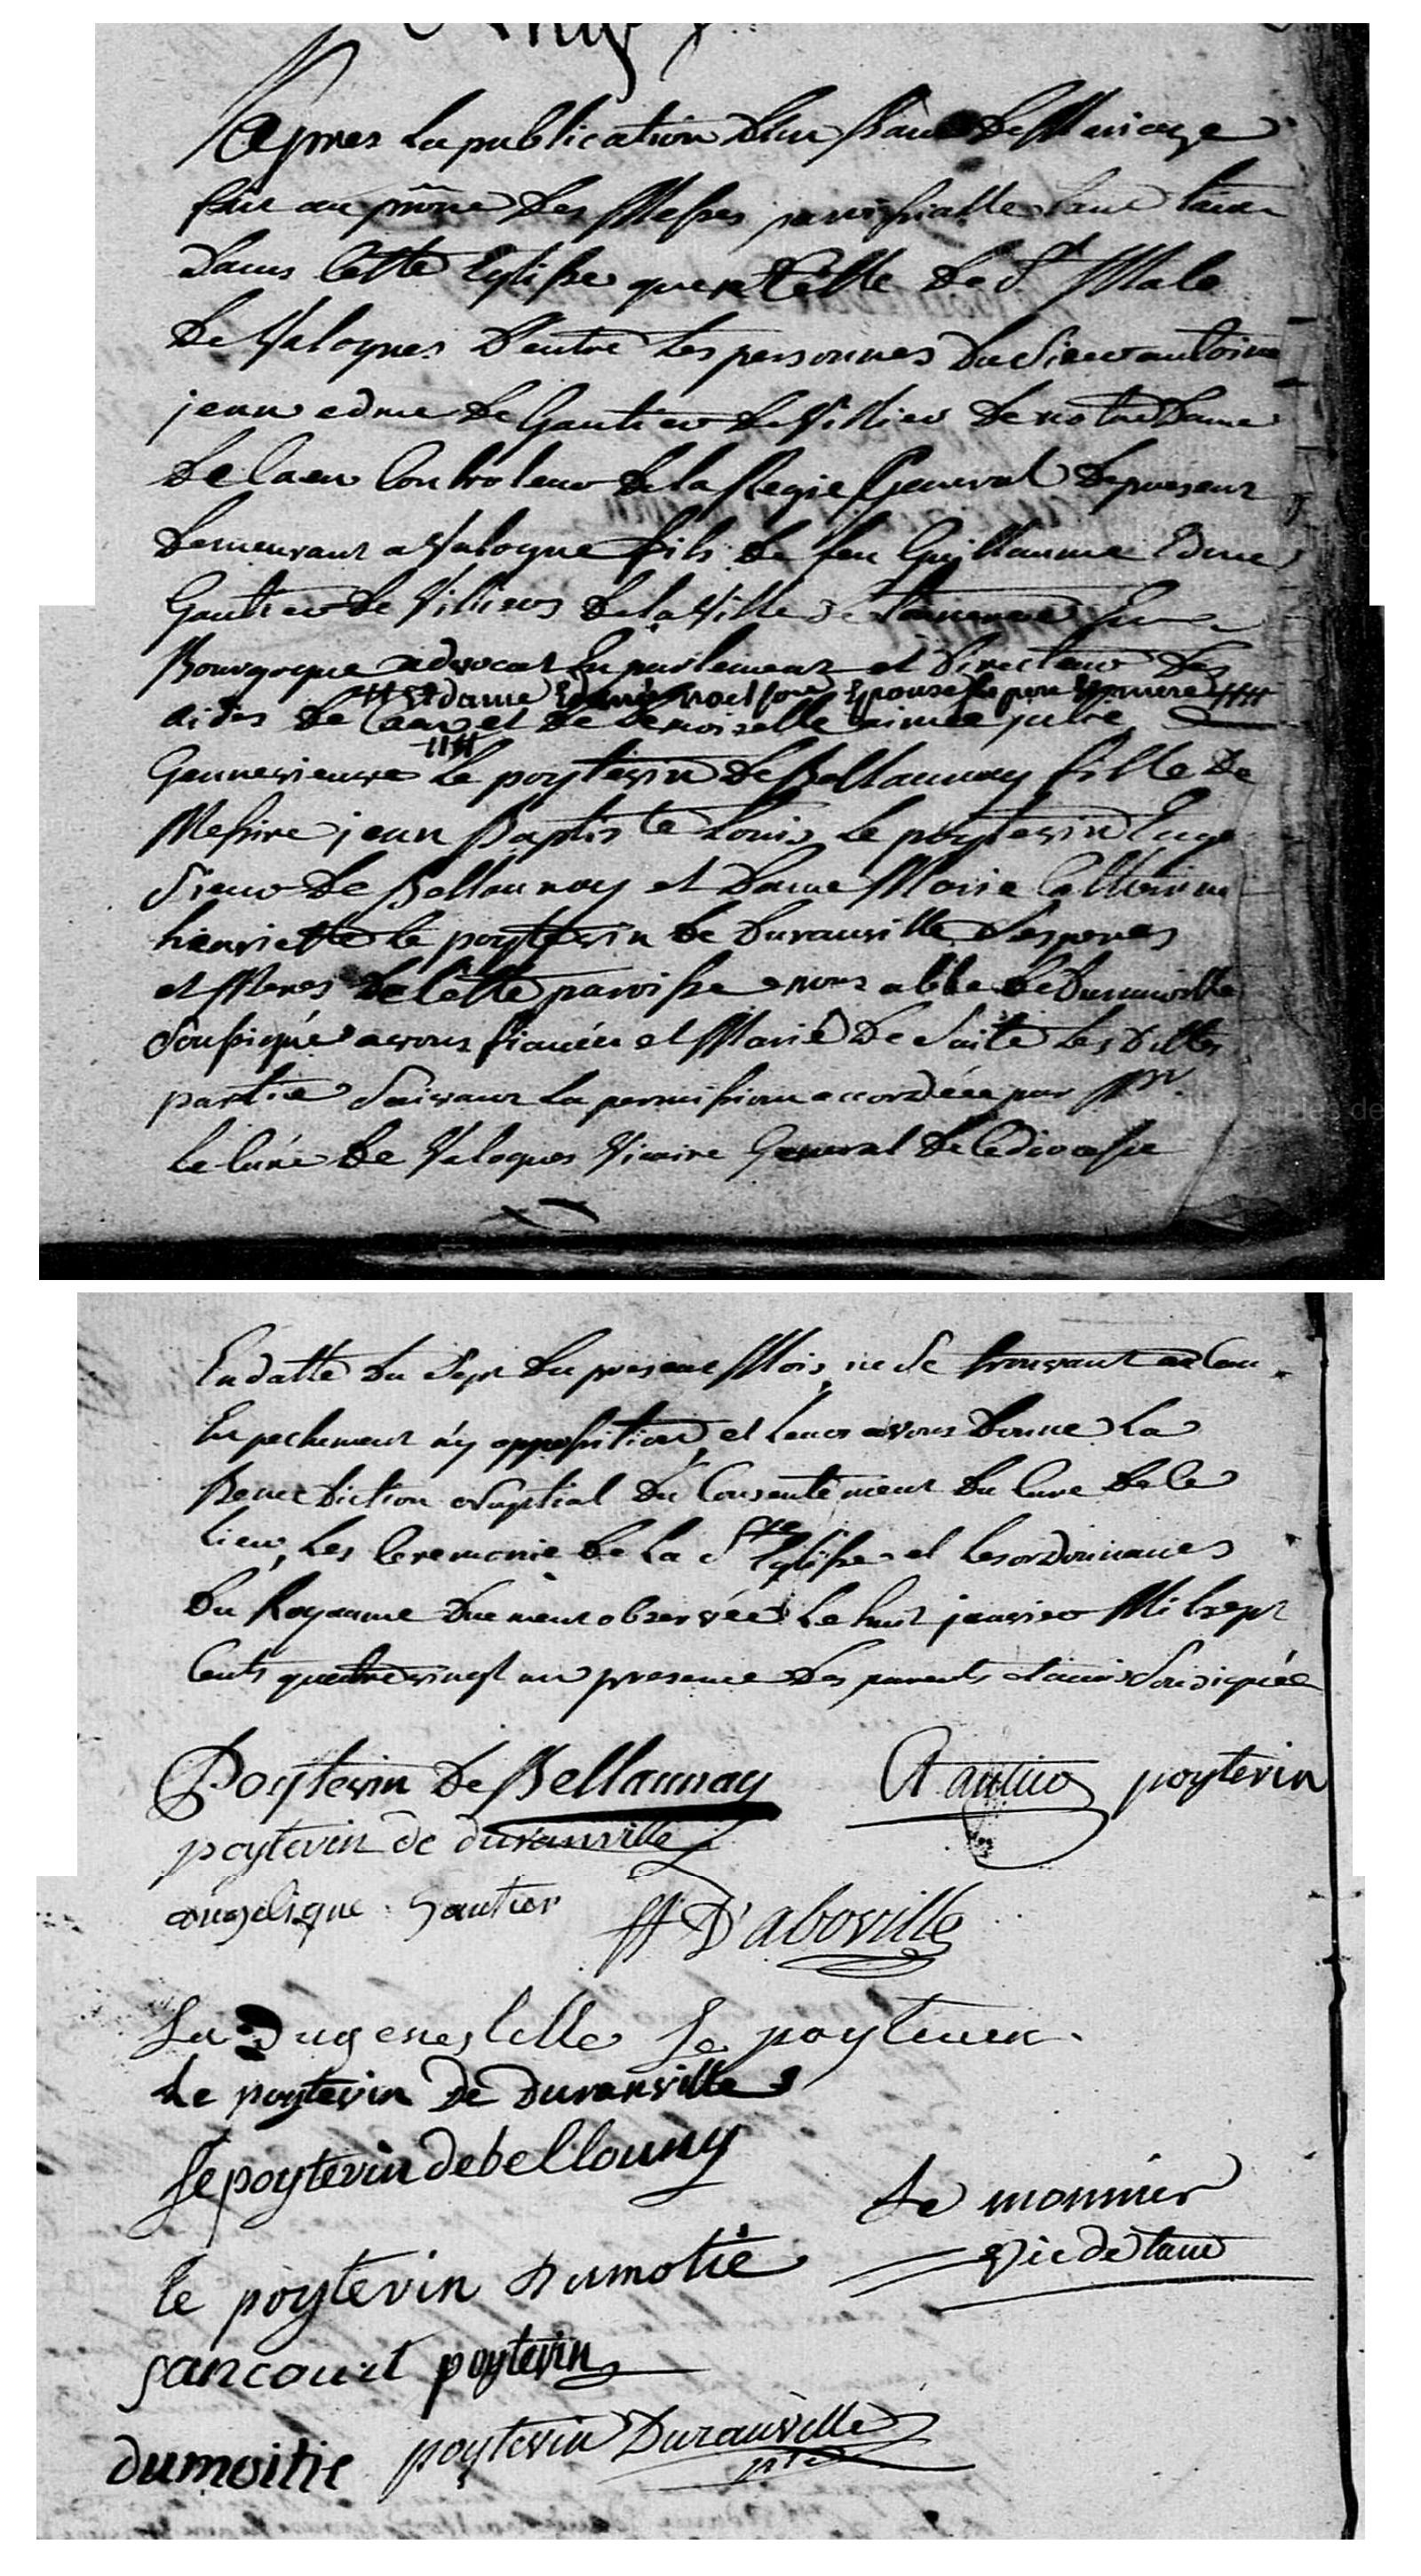 Apres La publication D'un Banc De Mariage
fait au prône Des Messes paroissialle tant
Dans Cette Eglise que celle De St Malo
De Valognes D'entre Les personnes Du Sieur antoine
jean edme De Gautier De Villier De notre Dame
De Caen Controleur De la Regie General De present
Demeurant a Valogne fils De feu Guillaume Edme
Gautier De Villiers De la Ville De En
Bourgogne advocat En parlement et Directeur Des
Et dame Epouse
aides De Caen et De Demoiselle aimée julie
Gennevieuve Le poytevin De Bellaunay fille De
Messire jean Baptiste Louis Le poytevin
Sieur De Bellaunay et Dame Marie Catherine
henriette le poytevin De Duranville Ses peres
et Meres De Cette paroisse nous abbé De Duranville
Soussigné avons fiancée et Marié De Suite Les Dittes
partie Suivant La permission accordéee par Mr
Le Curé De Valognes Vicaire General De Ce diocesse
En datte Du Sept Du present Mois ne Se trouvant aucun
Enpechement n'y oppossition, et Leurs avons Donné La
Benediction Nuptial Du Consentement Du Curé De Ce
Lieu, Les Ceremonie De La Ste Eglisse et Les ordonnances
Du Royaume Duement observéé Le huit janvier Mil sept
Cents quatrevingt un presence Des parents et amis Sousignée
Poytevin De Bellaunay Gautier poytevin
poytevin de duranville
angelique Gautier D'aboville
Le poytevin
Le poytevin De Duranville
Le poytevin de bellouny
Le monnier
le poytevin Dumotie
poytevin
dumoitie poytevin Duranville
ptre